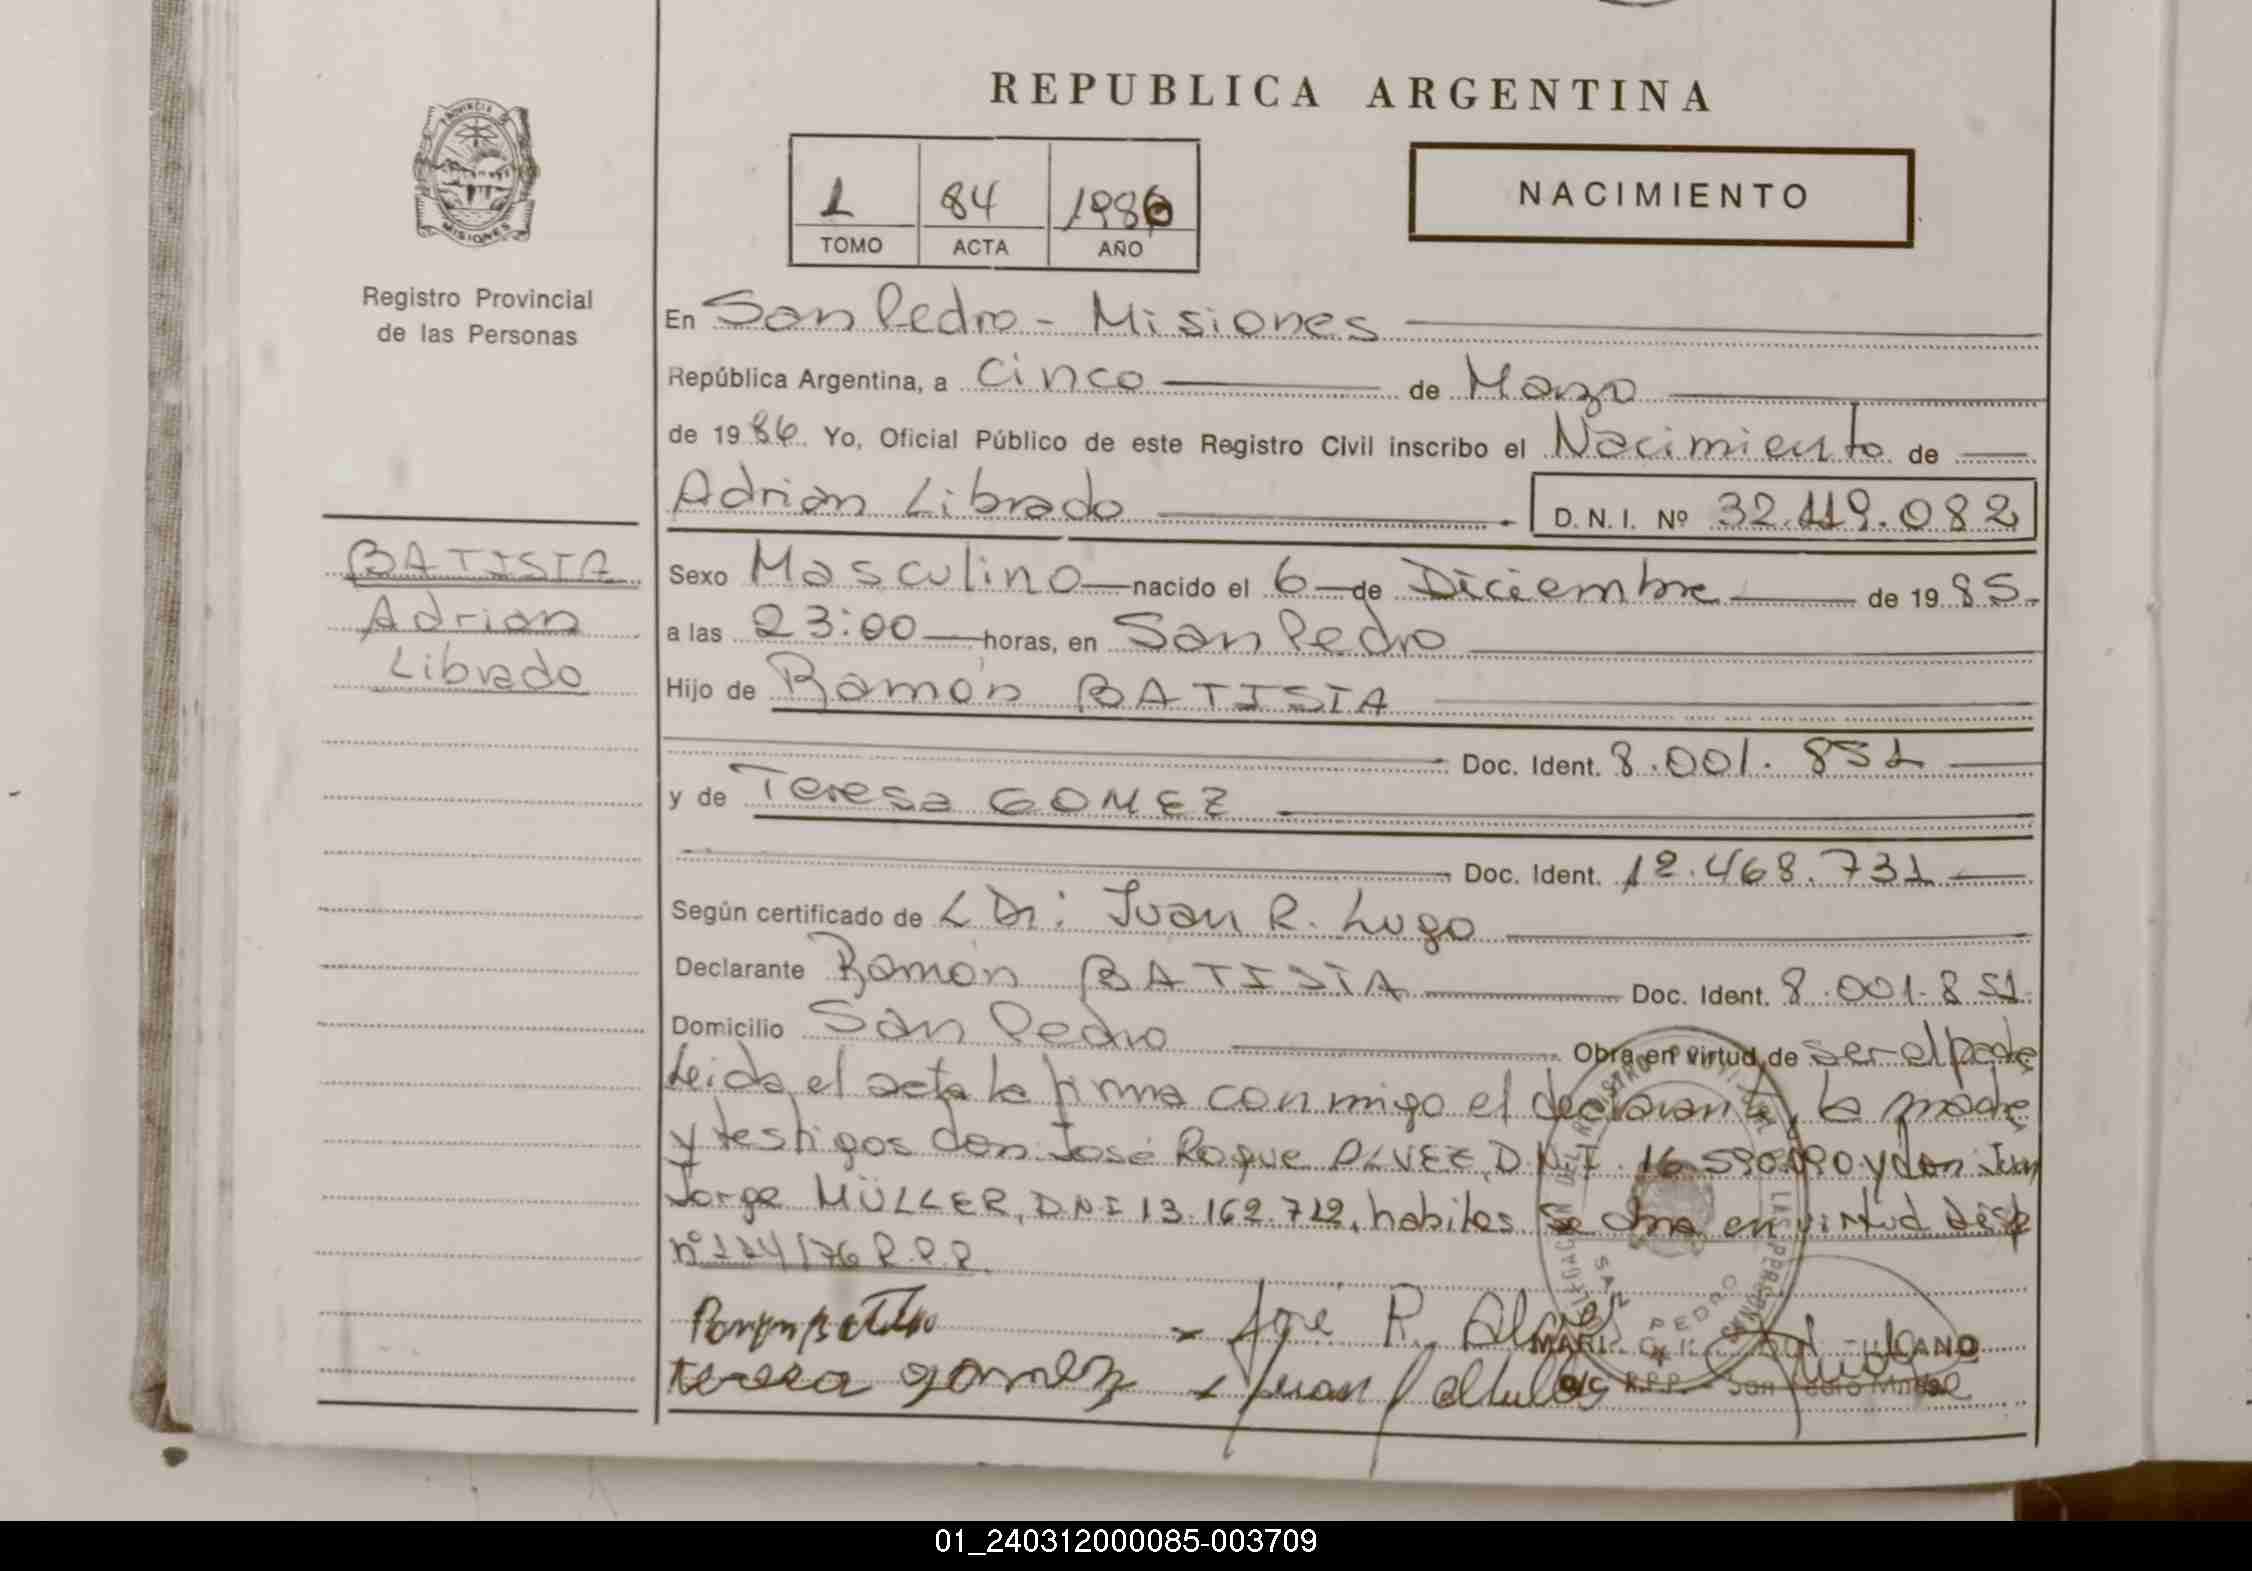 REPUBLICA ARGENTINA
PROVINCIA DE MISIONES
Registro Provincial
de las Personas
1 84 1986
TOMO ACTA AÑO
NACIMIENTO
En San Pedro - Misiones
República Argentina, a cinco de Marzo
de 1986 Yo, Oficial Público de este Registro Civil inscribo el Nacimiento de
Adrian Librado D.N.I. Nº 32.119.082
BATISTA
Adrian
Librado
Sexo Masculino nacido el 6 de Diciembre de 1985.
a las 23:00 horas, en San Pedro
Hijo de Ramón BATISTA
Doc. Ident. 8.001.851
y de Teresa GOMEZ
Doc. Ident. 12.468.731
Según certificado de L Dr: Juan R. Lugo
Declarante Ramón BATISTA Doc. Ident. 8.001.851.
Domicilio San Pedro Obra en virtud de ser el padre
Leida el acta la firma conmigo el declarante, la madre
y testigos don José Roque ALVEZ, D.N.I. 16.590.090 y don Juan
Jorge MÜLLER, DNI 13.162.712, habiles se obra en virtud Disp
nº 124/76 R.P.P.
José R. Alvez
teresa gomez Juan J
SAN PEDRO
01_240312000085-003709